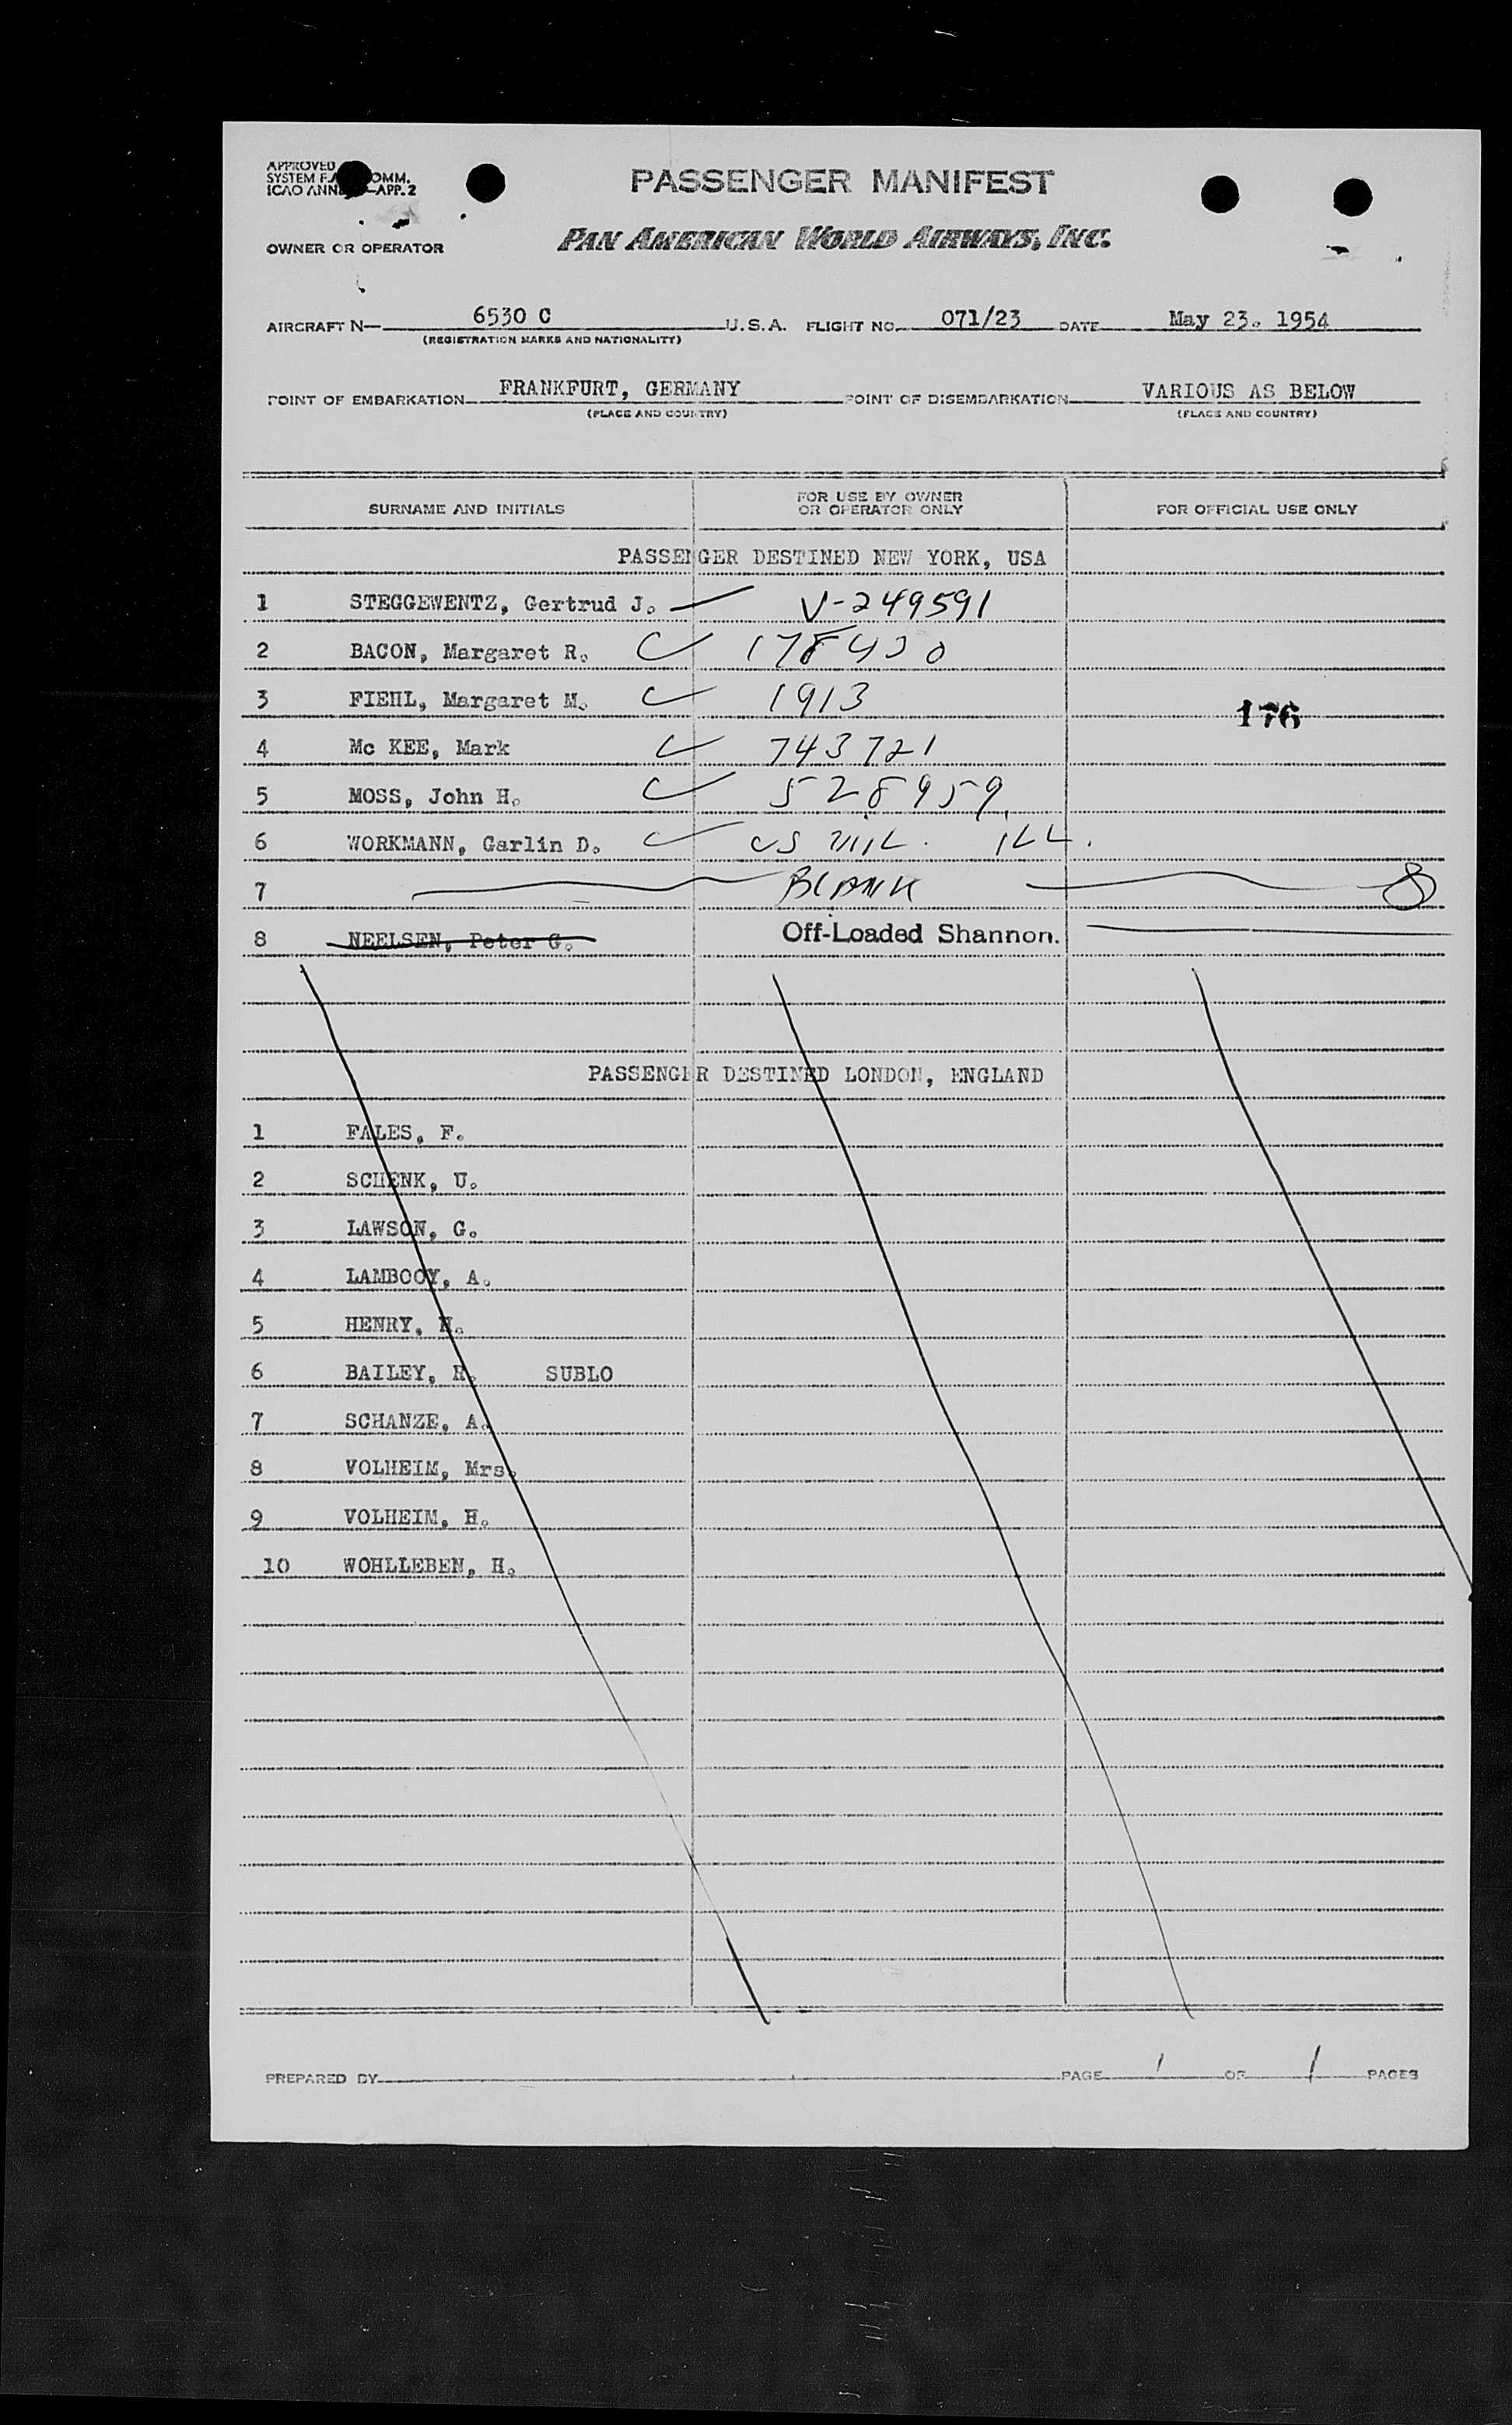 APPROVED
SYSTEM OMM.
ICAO ANN APP. 2
PASSENGER MANIFEST
OWNER OR OPERATOR PAN AMERICAN WORLD AIRWAYS, INC.
AIRCRAFT N— 6530 C U.S.A. FLIGHT NO. 071/23 DATE May 23. 1954
(REGISTRATION MARKS AND NATIONALITY)
POINT OF EMBARKATION FRANKFURT, GERMANY POINT OF DISEMBARKATION VARIOUS AS BELOW
(PLACE AND COUNTRY) (PLACE AND COUNTRY)
SURNAME AND INITIALS FOR USE BY OWNER OR OPERATOR ONLY FOR OFFICIAL USE ONLY
PASSENGER DESTINED NEW YORK, USA
1 STEGGEWENTZ, Gertrud J. V-249591
2 BACON, Margaret R. 178430
3 FIEHL, Margaret M. 1913
176
4 Mc KEE, Mark 743721
5 MOSS, John H. 528959
6 WORKMANN, Garlin D. US MIL. ILL.
7 BLANK 8
8 NEELSEN, Peter G. Off-Loaded Shannon.
PASSENGER DESTINED LONDON, ENGLAND
1 FALES, F.
2 SCHENK, U.
3 LAWSON, G.
4 LAMBOOY, A.
5 HENRY, H.
6 BAILEY, R. SUBLO
7 SCHANZE, A.
8 VOLHEIM, Mrs.
9 VOLHEIM, H.
10 WOHLLEBEN, H.
PREPARED BY PAGE 1 OF 1 PAGES